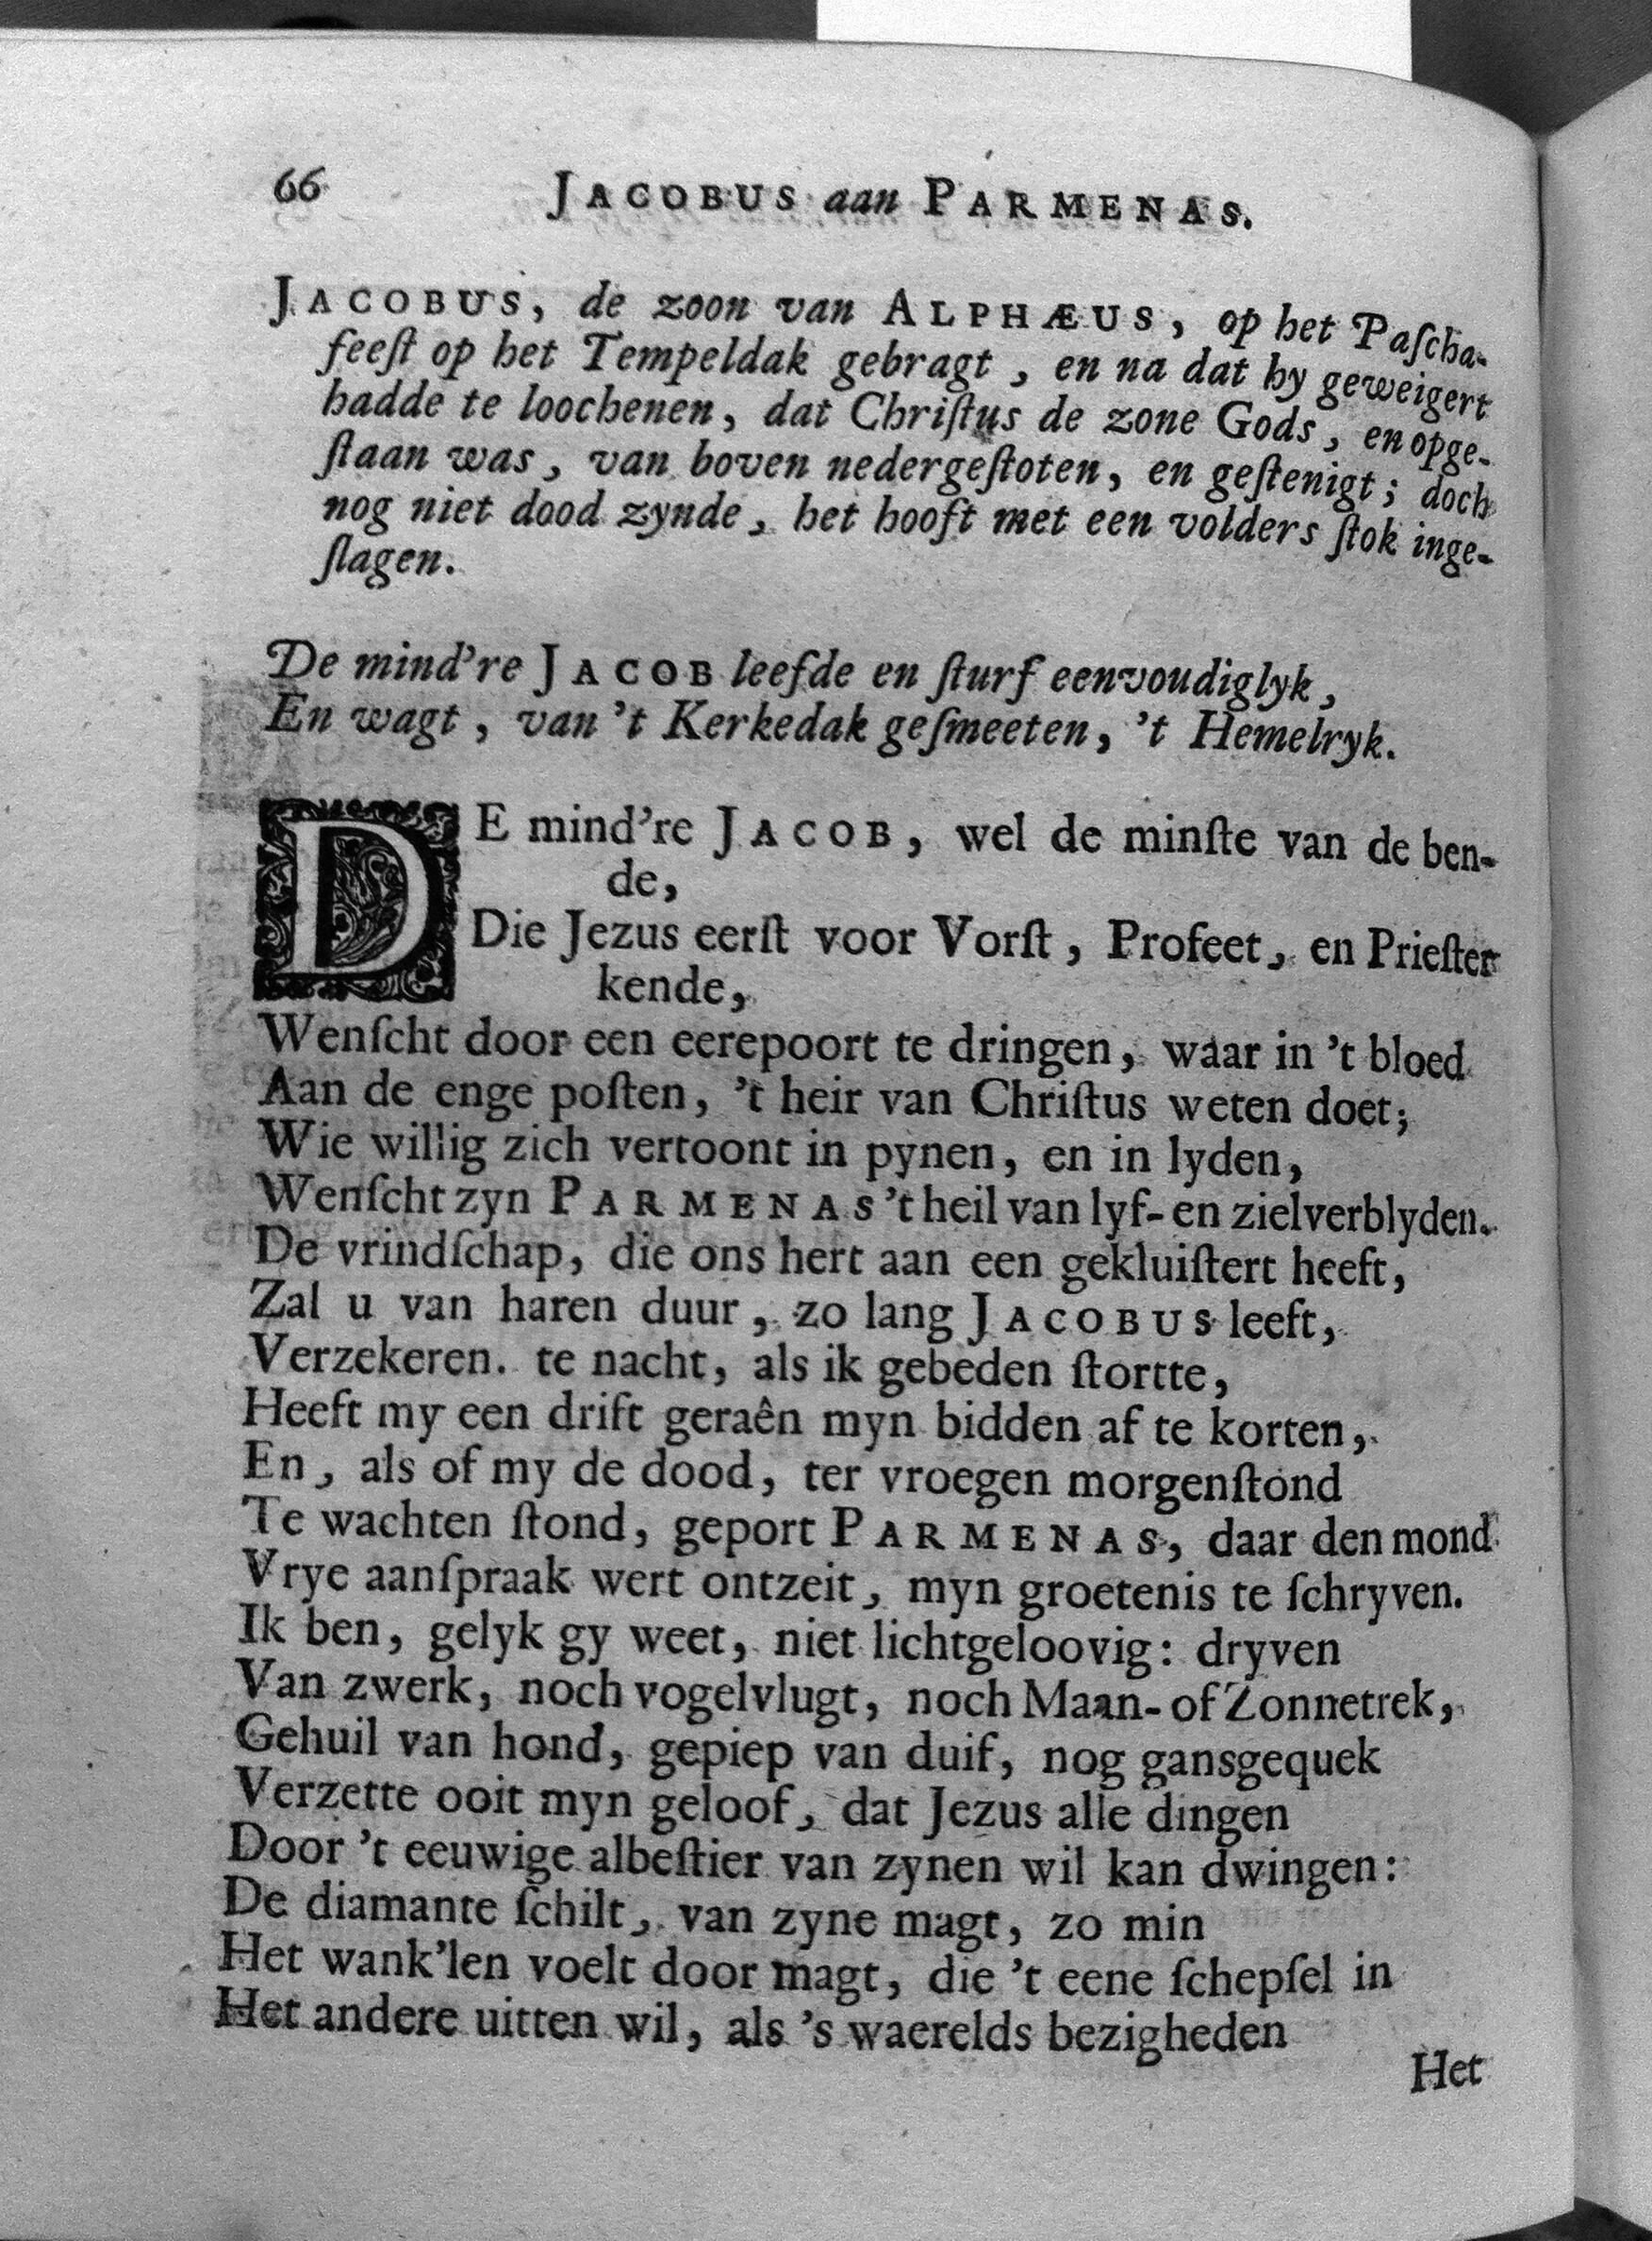 66 JACOBUS aan PARMENAS.
JACOBUS, de zoon van ALPHÆUS, op het Paſcha-
feeſt op het Tempeldak gebragt, en na dat hy geweigert
hadde te loochenen, dat Chriſtus de zone Gods, en opge-
ſtaan was, van boven nedergeſtoten, en geſtenigt; doch
nog niet dood zynde, het hooft met een volders ſtok inge-
ſlagen.
De mind're JACOB leefde en ſturf eenvoudiglyk,
En wagt, van 't Kerkedak geſmeeten, 't Hemelryk.
DE mind're JACOB, wel de minſte van de ben-
de,
Die Jezus eerſt voor Vorſt, Profeet, en Prieſter
kende,
Wenſcht door een eerepoort te dringen, waar in 't bloed
Aan de enge poſten, 't heir van Chriſtus weten doet;
Wie willig zich vertoont in pynen, en in lyden,
Wenſcht zyn PARMENAS 't heil van lyf- en zielverblyden.
De vrindſchap, die ons hert aan een gekluiſtert heeft,
Zal u van haren duur, zo lang JACOBUS leeft,
Verzekeren. te nacht, als ik gebeden ſtortte,
Heeft my een drift geraên myn bidden af te korten,
En, als of my de dood, ter vroegen morgenſtond
Te wachten ſtond, geport PARMENAS, daar den mond
Vrye aanſpraak wert ontzeit, myn groetenis te ſchryven.
Ik ben, gelyk gy weet, niet lichtgeloovig: dryven
Van zwerk, noch vogelvlugt, noch Maan- of Zonnetrek,
Gehuil van hond, gepiep van duif, nog gansgequek
Verzette ooit myn geloof, dat Jezus alle dingen
Door 't eeuwige albeſtier van zynen wil kan dwingen:
De diamante ſchilt, van zyne magt, zo min
Het wank'len voelt door magt, die 't eene ſchepſel in
Het andere uitten wil, als 's waerelds bezigheden
Het